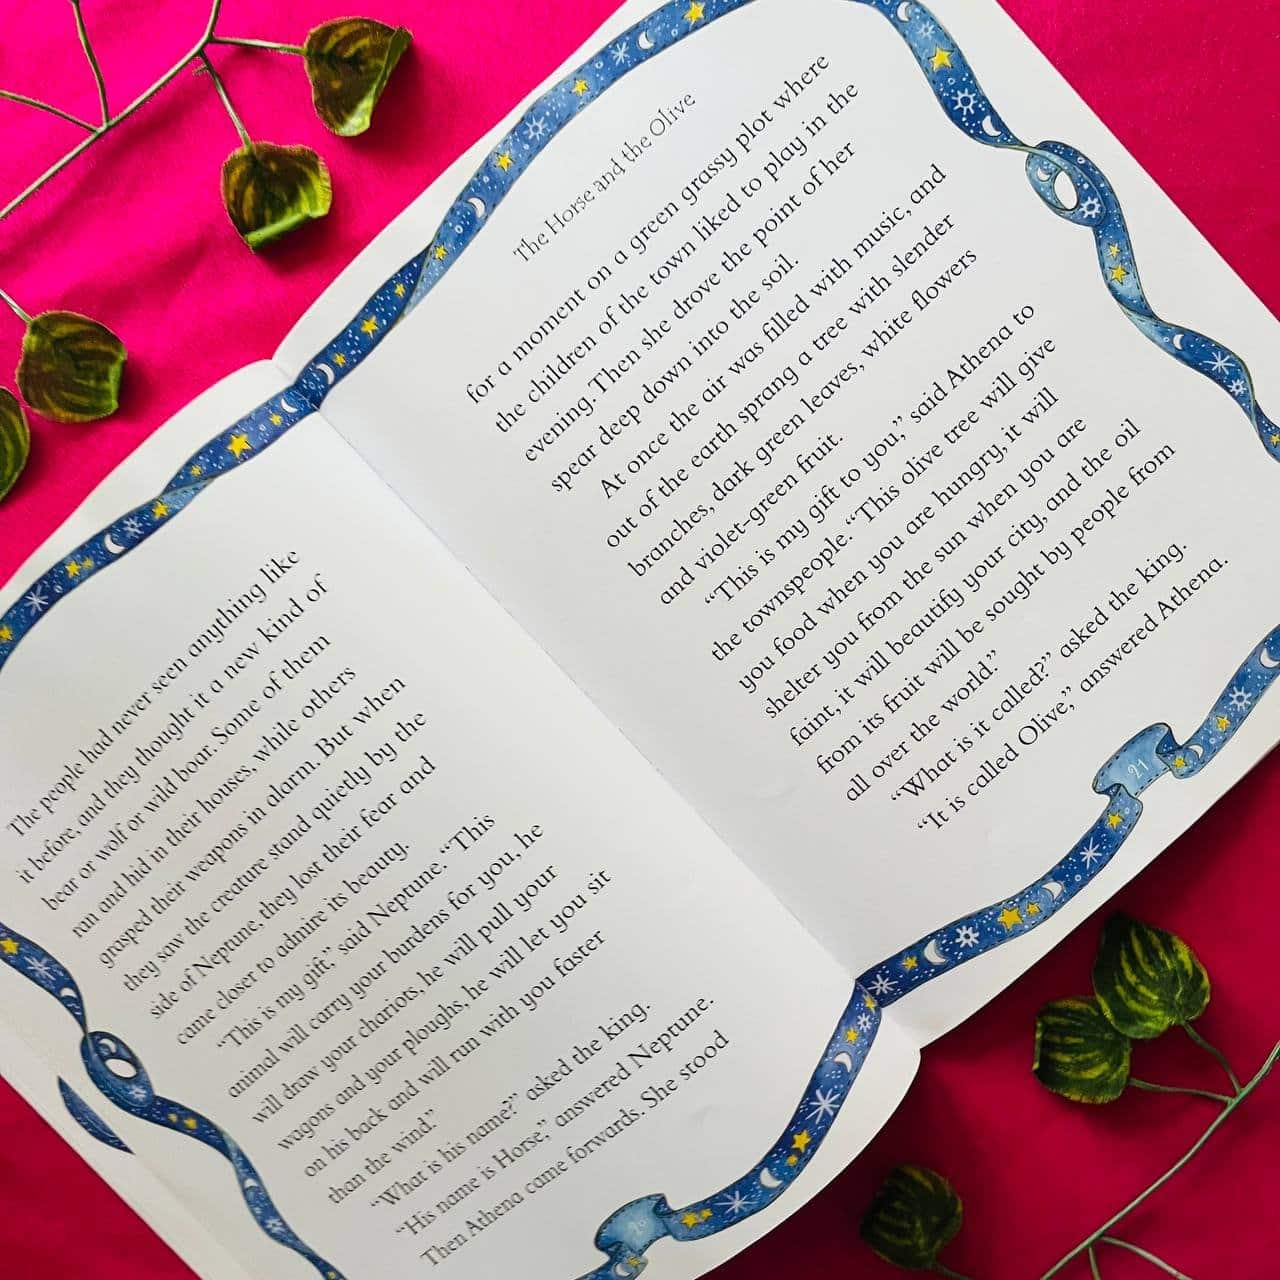 The people had never seen anything like
it before, and they thought it a new kind of
bear or wolf or wild boar. Some of them
ran and hid in their houses, while others
grasped their weapons in alarm. But when
they saw the creature stand quietly by the
side of Neptune, they lost their fear and
came closer to admire its beauty.
“This is my gift,” said Neptune. “This
animal will carry your burdens for you, he
will draw your chariots, he will pull your
wagons and your ploughs, he will let you sit
on his back and will run with you faster
than the wind.”
“What is his name?” asked the king.
“His name is Horse,” answered Neptune.
Then Athena came forwards. She stood
20
The Horse and the Olive
for a moment on a green grassy plot where
the children of the town liked to play in the
evening. Then she drove the point of her
spear deep down into the soil.
At once the air was filled with music, and
out of the earth sprang a tree with slender
branches, dark green leaves, white flowers
and violet-green fruit.
“This is my gift to you,” said Athena to
the townspeople. “This olive tree will give
you food when you are hungry, it will
shelter you from the sun when you are
faint, it will beautify your city, and the oil
from its fruit will be sought by people from
all over the world.”
“What is it called?” asked the king.
“It is called Olive,” answered Athena.
21